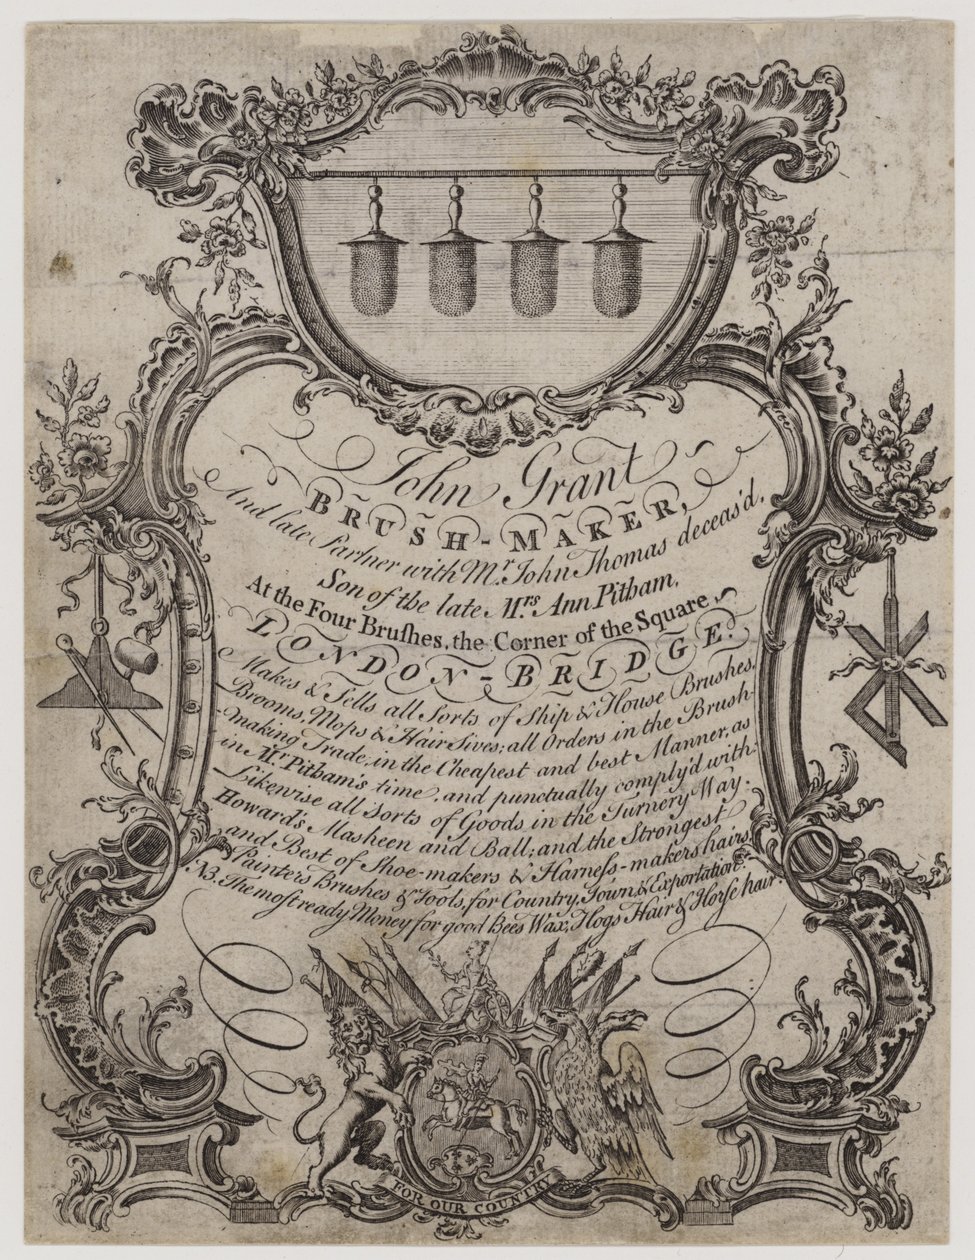 John Grant
BRUSH-MAKER,
And late Partner with Mr. John Thomas deceas'd,
Son of the late Mrs. Ann Pitham,
At the Four Bruſhes, the Corner of the Square,
LONDON-BRIDGE.
Makes & Sells all Sorts of Ship & House Brushes,
Brooms, Mops & Hair Sives; all Orders in the Brush-
making Trade, in the Cheapest and best Manner, as
in Mr. Pitham's time, and punctually comply'd with.
Likewise all Sorts of Goods in the Turnery Way.
Howard's Masheen and Ball; and the Strongest
and Best of Shoe-makers & Harneſs-makers hairs
Painters Brushes & Tools, for Country, Town, & Exportation.
NB. The most ready Money for good Bees Wax, Hogs Hair & Horſe hair.
FOR OUR COUNTRY